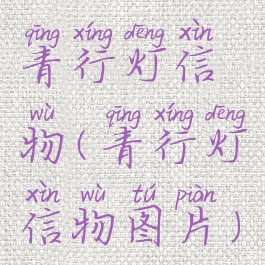 qīng xíng dēng xìn
青行灯信
wù qīng xíng dēng
物(青行灯
xìn wù tú piàn
信物图片)